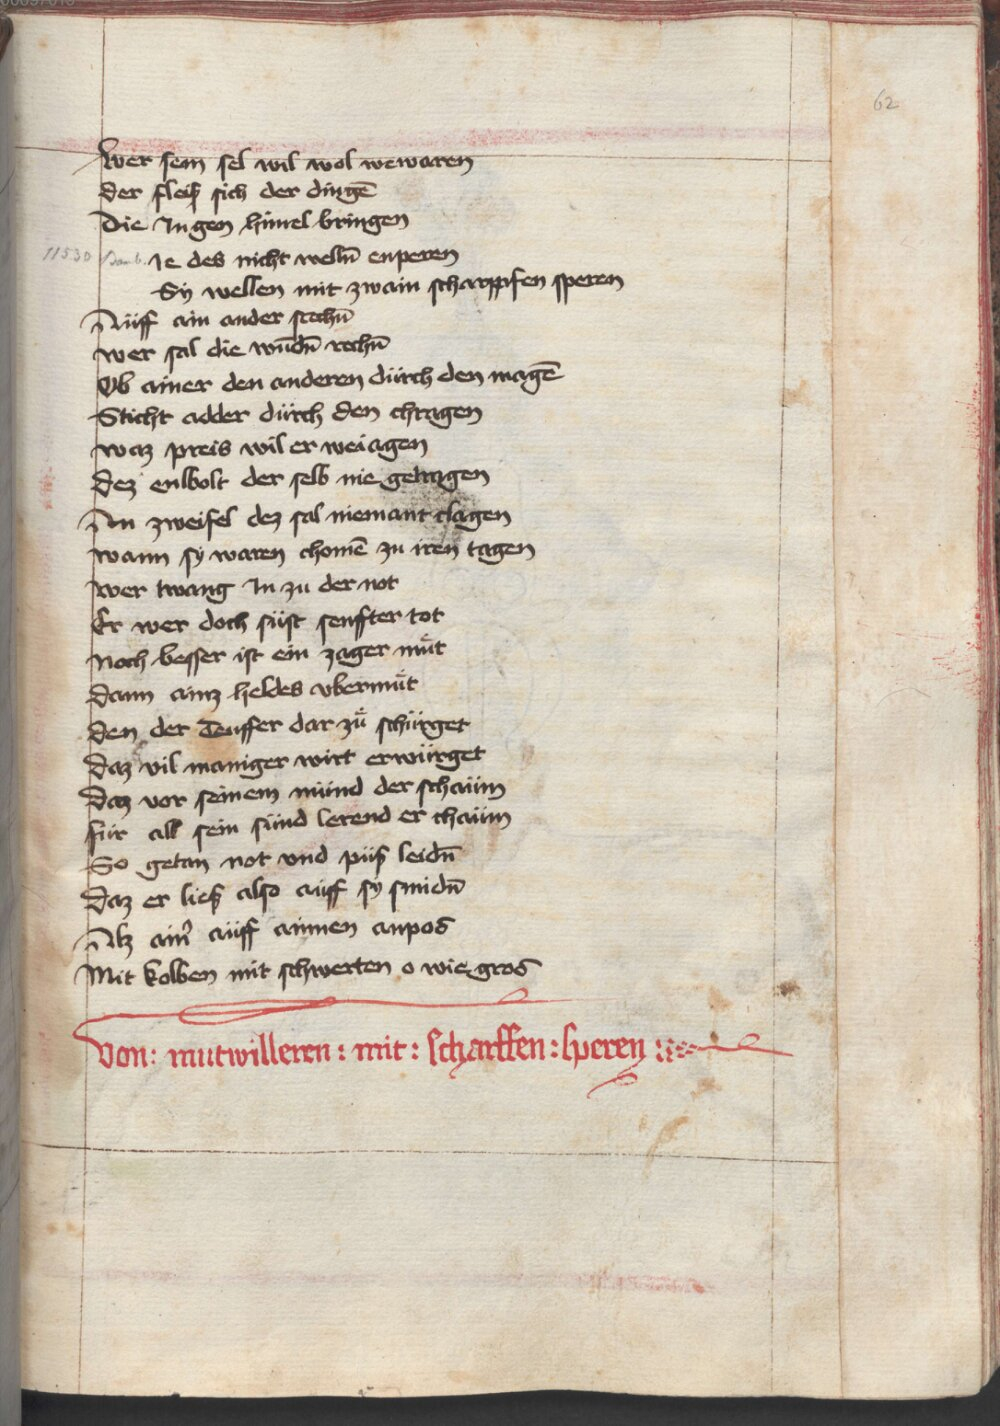 62
Wer sein sel wil wol wewaren
Der fleiß sich der dingē
Die In gen himel bringen
11530 Ie des nicht welln̄ enperen
Sÿ wellen mit zwain scharppfen speren
Aüff ain ander stechn̄
wer sal die wūdn̄ rechn̄
Ob ainer den anderen dürch den magē
Sticht adder dürch den chragen
waz preis wil er weiagen
Dez enlbolt der selb nie getragen
An zweifel dez sal niemant clagen
wann sÿ waren chomē zu iren tagen
wer twang In zu der not
Er wer doch süst senffter tot
Noch besser ist ein zager mut
Dann ainz heldes vbermut
Den der Teuffer dar zu schürget
Daz vil maniger wirt erwürget
Daz vor seinem münd der schaüm
für all sein sünd lerend er chaüm
So getan not vnd püß leidn̄
Daz er ließ also aüff sÿ smidn̄
Alz ain̄ aüff ainnen anpos
Mit kolben mit schwerten o wie gros
Von : mutwilleren : mit : scharffen : speren :